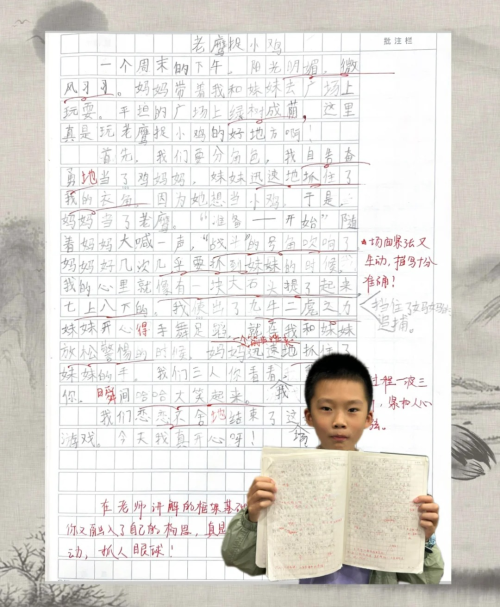 老鹰捉小鸡
批注栏
一个周末的下午，阳光明媚，微
风习习。妈妈带着我和妹妹去广场上
玩耍。平坦的广场上绿树成荫，这里
真是玩老鹰捉小鸡的好地方啊！
首先，我们要分角色，我自告奋
勇地当了鸡妈妈，妹妹迅速地抓住了
我的衣角，因为她想当小鸡，于是
妈妈当了老鹰。“准备——开始”随
着妈妈大喊一声，“战斗”的号角吹响了
妈妈好几次几乎要抓到妹妹的时候，
我的心里就像有一块大石头提了起来
七上八下的。我使出了九牛二虎之力
挡住了
妹妹开心得手舞足蹈，就在我和妹妹
放松警惕的时候，妈妈迅速地抓住了
妹妹的手。我们三人你看看
你，瞬间哈哈大笑起来。我
我们恋恋不舍地结束了这
游戏。今天我真开心呀！
场面紧张又
生动，描写十分
准确！
过程一波三
在老师讲解的框架基
你又融入了自己的构思，真是
动，抓人眼球！